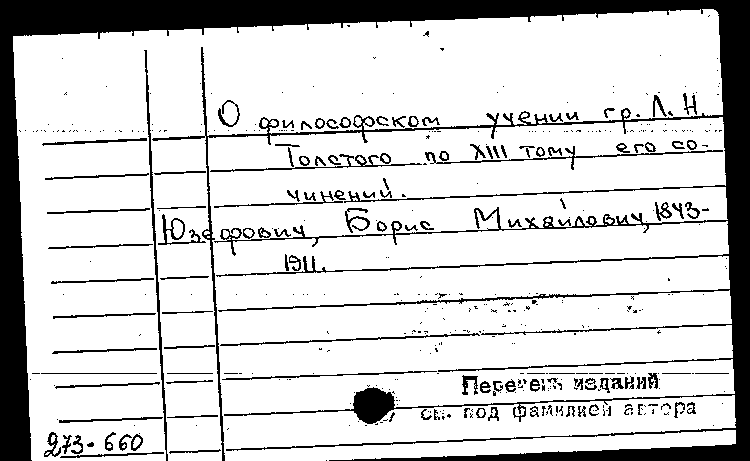 О философском учении гр. Л. Н.
Толстого по XIII тому его со-
чинений.
Юзефович, Борис Михайлович, 1843-
1911.
Перечень изданий
см. под фамилией автора
273-660